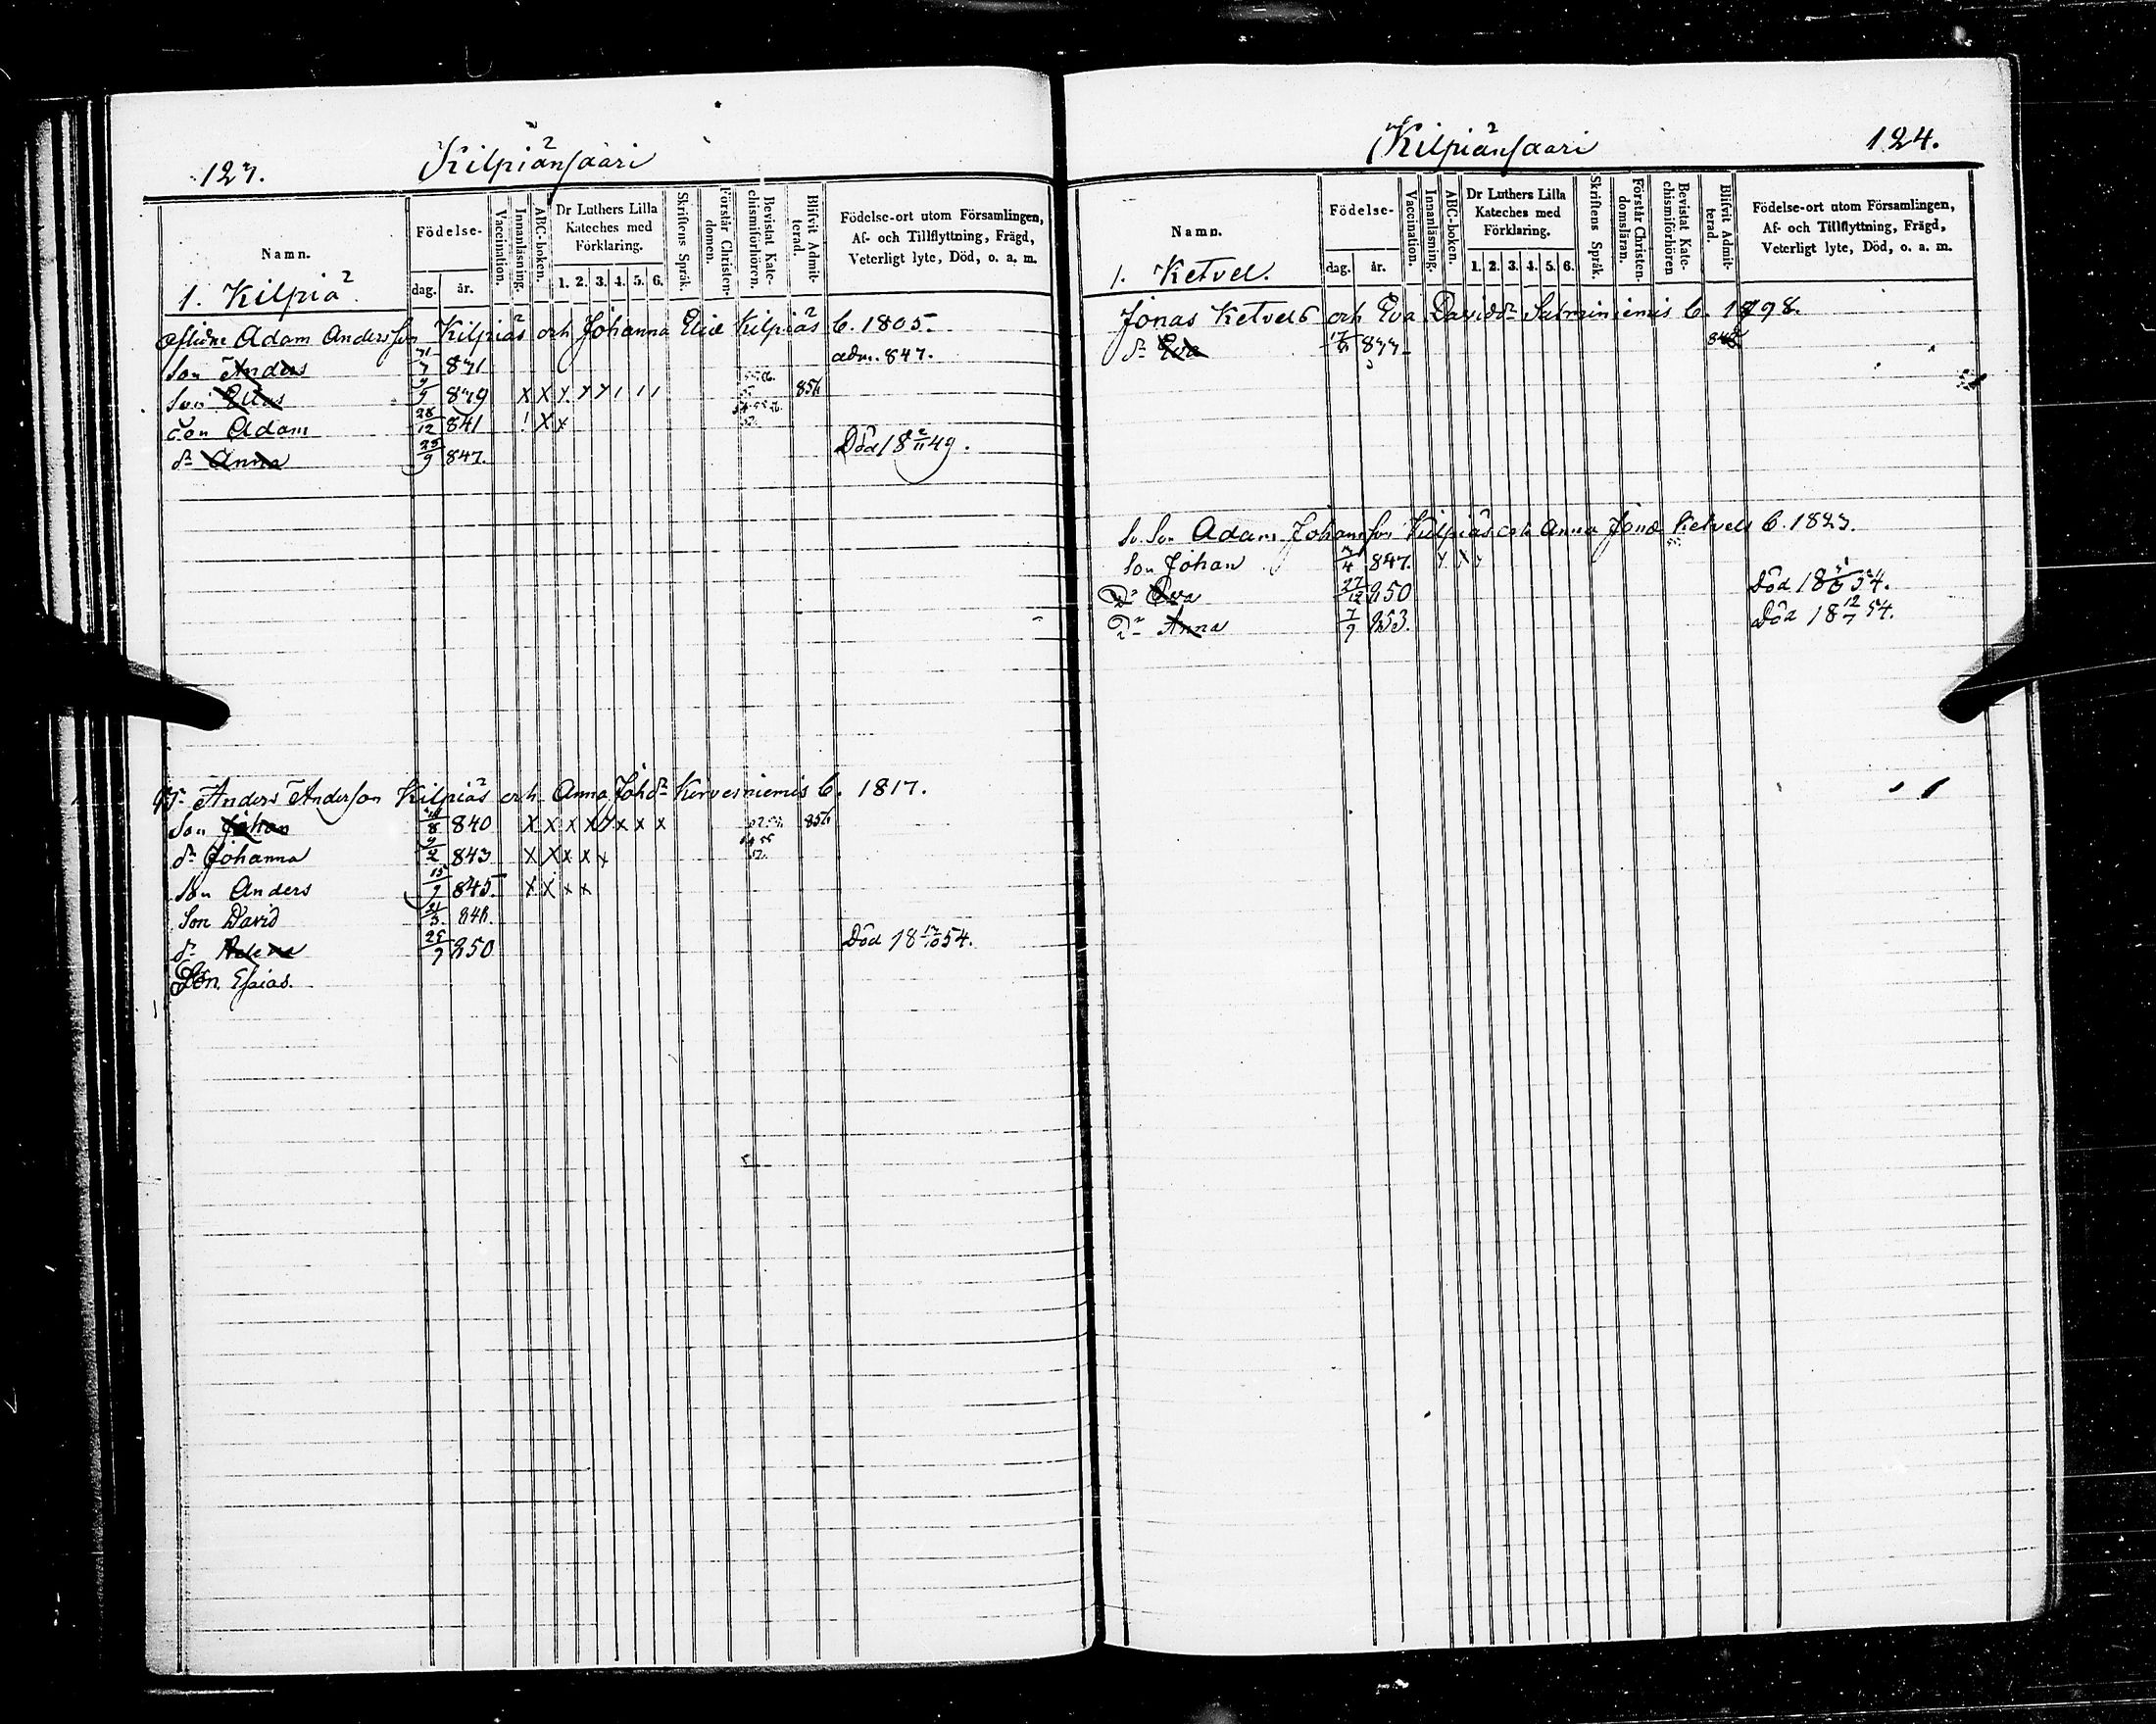 123.
Kilpiänsaari
Namn.
Födelse-
dag. år.
Vaccination.
Innanläsning.
ABC-boken.
Dr Luthers Lilla Kateches med Förklaring.
1. 2. 3. 4. 5. 6.
Skriftens Språk.
Förstår Christen-domen.
Bevistat Kate-chismiförhören.
Blifvit Admit-terad.
Födelse-ort utom Församlingen, Af- och Tillflyttning, Frägd, Veterligt lyte, Död, o. a. m.
1. Kilpiä.
Adam Andersson Kilpiäs och Johanna Eliæ Kilpiäs C. 1805.
Son Anders 7 831 adm. 847.
Son Elias 9/5 839 X X y y y 1 1 1 856
Son Adam 28/12 841 ! X x
dr Anna 25/9 847. Död 18 2/11 49.
Anders Anderson Kilpiäs och Anna Johdr Kirvesniemis C. 1817.
Son Johan 8 840 X X X X y x x x 856
dr Johanna 9/2 843 X X x x x
Son Anders 15/9 845. X X x x
Son David 21/3 848.
dr Helena 25/9 850 Död 18 12/10 54.
Son Esaias.
Kilpiänsaari
124.
Namn.
Födelse-
dag. år.
Vaccination.
Innanläsning.
ABC-boken.
Dr Luthers Lilla Kateches med Förklaring.
1. 2. 3. 4. 5. 6.
Skriftens Språk.
Förstår Christen-domsläran.
Bevistat Kate-chismiförhören
Blifvit Admit-terad.
Födelse-ort utom Församlingen, Af- och Tillflyttning, Frägd, Veterligt lyte, Död, o. a. m.
1. Ketvel.
Jonas Ketvels och Eva Daviddr Salminiemis C. 1798.
dr Eva 833
Adam Johansson Kilpiäs och Anna Jonæ Ketvels C. 1823.
Son Johan 3/4 847. y x y
Dr Eva 27/12 850 Död 18 54.
Dr Anna 7/9 853. Död 18 12/7 54.